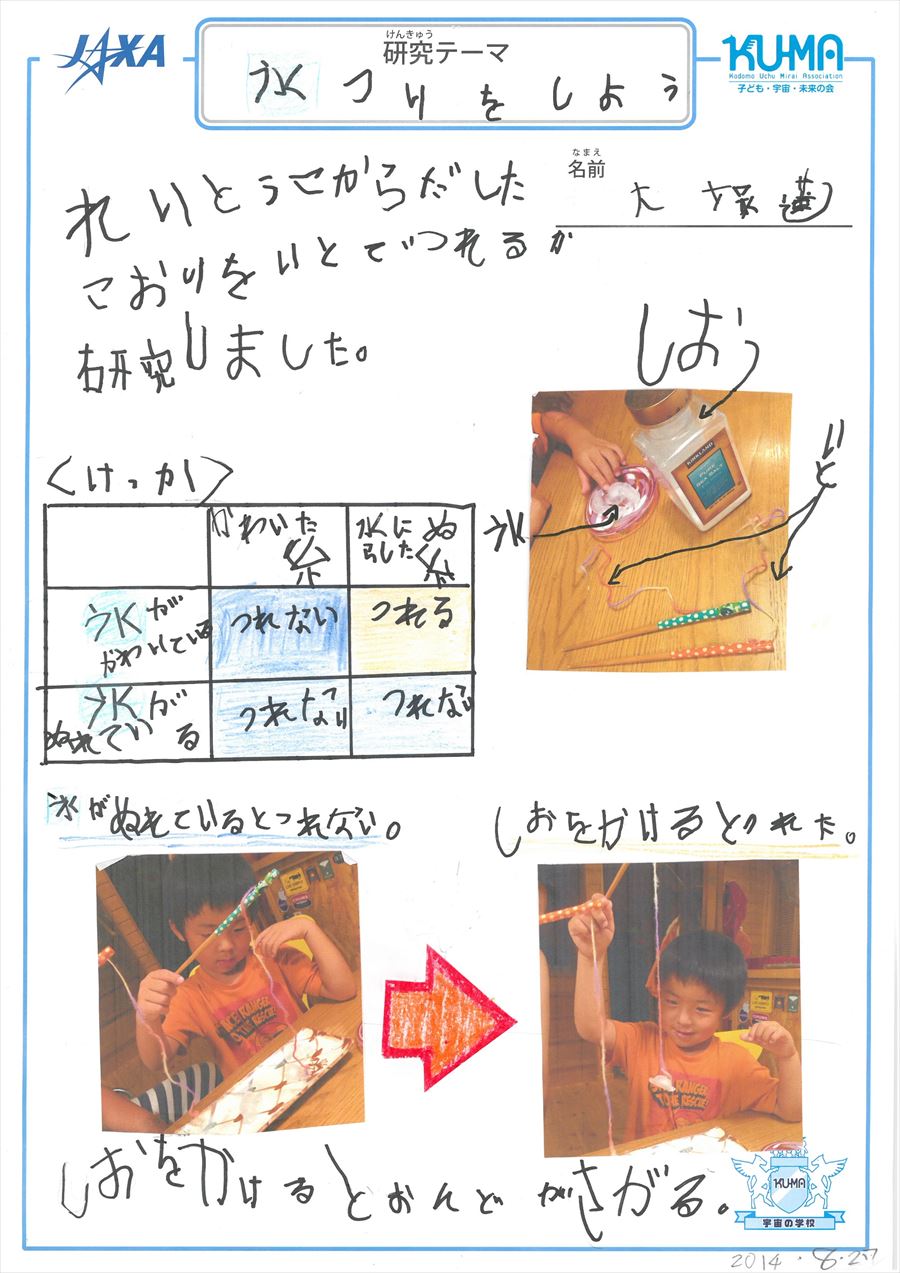 JAXA
けんきゅう
研究テーマ
氷つりをしよう
KU-MA
Kodomo Uchu Mirai Association
子ども・宇宙・未来の会
なまえ
名前
大塚蓮
れいとうこからだした
こおりをいとでつれるか
研究しました。
しお
いと
氷
KIRKLAND
PURE
SEA SALT
<けっか>
かわいた糸
水にぬ
らした糸
氷が
かわいている
つれない
つれる
氷が
ぬれている
つれない
つれない
氷がぬれているとつれない。
しおをかけるとつれた。
しおをかけるとおんどがさがる。
KU-MA
宇宙の学校
2014.8.27